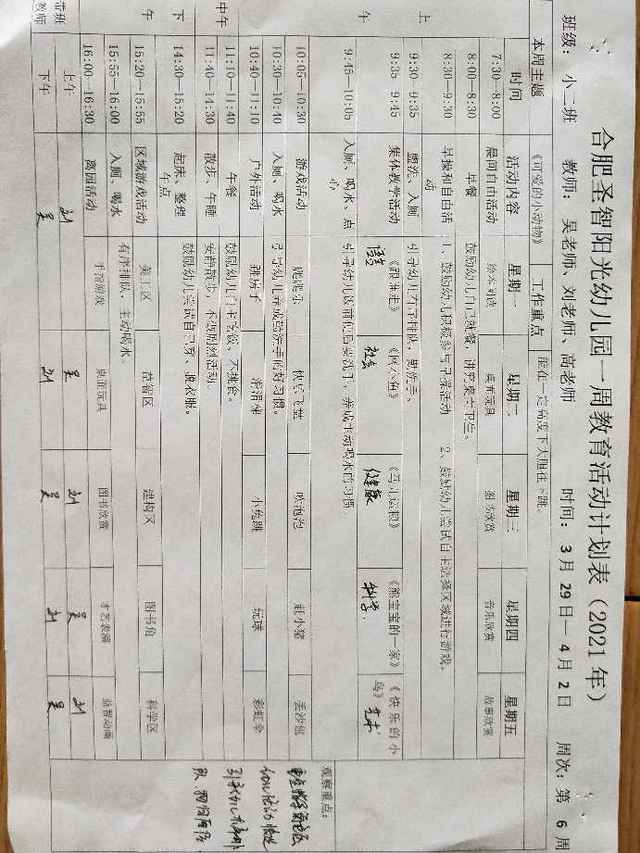 合肥圣智阳光幼儿园一周教育活动计划表（2021年）
班级： 小二班 教师：吴老师、刘老师、高老师 时间：3月29日—4月2日 周次：第 6 周
本周主题 《可爱的小动物》 工作重点 能在一定高度下大胆往下跳。
时间 活动内容 星期一 星期二 星期三 星期四 星期五
7:30—8:00 晨间自由活动 绘本阅读 桌面玩具 图书欣赏 音乐欣赏 故事欣赏
8:00—8:30 早餐 鼓励幼儿自己就餐，讲究集中卫生。
上
8:30—9:30 早操和自由活动 1、鼓励幼儿积极参与早操活动 2、鼓励幼儿尝试自主选择区域进行游戏。
9:30—9:35 盥洗、入厕 引导幼儿有序排队，勤洗手。
9:35—9:45 集体教学活动 《跟谁走》 《网小鱼》 《马小运粮》 《熊宝宝的一家》 《快乐的小鸟》
语言 社会 健康 科学 艺术
午
9:45—10:05 入厕、喝水、点心 引导幼儿饭前便后要洗手，养成主动喝水的习惯。
10:05—10:30 游戏活动 跳跳乐 快乐飞盘 吹泡泡 赶小猪 丢沙包
10:30—10:40 入厕、喝水 引导幼儿养成勤洗手的好习惯。
10:40—11:10 户外活动 跳房子 滑滑梯 小兔跳 玩球 彩虹伞
中午
11:10—11:40 午餐 鼓励幼儿自主吃饭，不挑食。
11:40—14:30 散步、午睡 安静散步，不做剧烈活动。
下
14:30—15:20 起床、整理午点 鼓励幼儿尝试自己穿、脱衣服。
午
15:20—15:55 区域游戏活动 美工区 益智区 建构区 图书角 科学区
15:55—16:00 入厕、喝水 有序排队，主动喝水。
16:00—16:30 离园活动 手指游戏 桌面玩具 图书欣赏 才艺表演 益智动画
带班教师 上午 刘 吴 刘 吴 刘
下午 吴 刘 吴 刘 吴
观察重点：